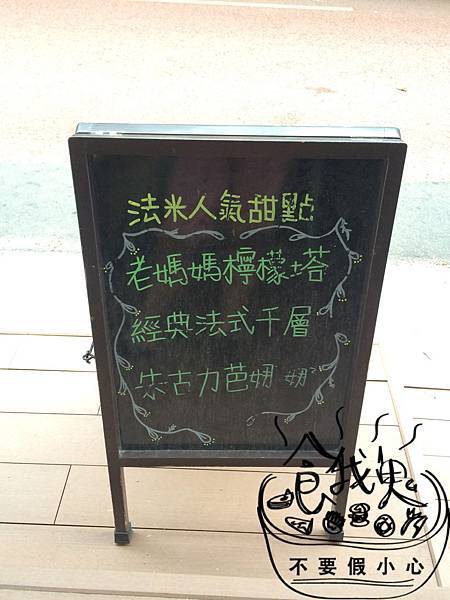 法米人氣甜點
老媽媽檸檬塔
經典法式千層
朱古力芭娜娜
食我鬼
不要假小心